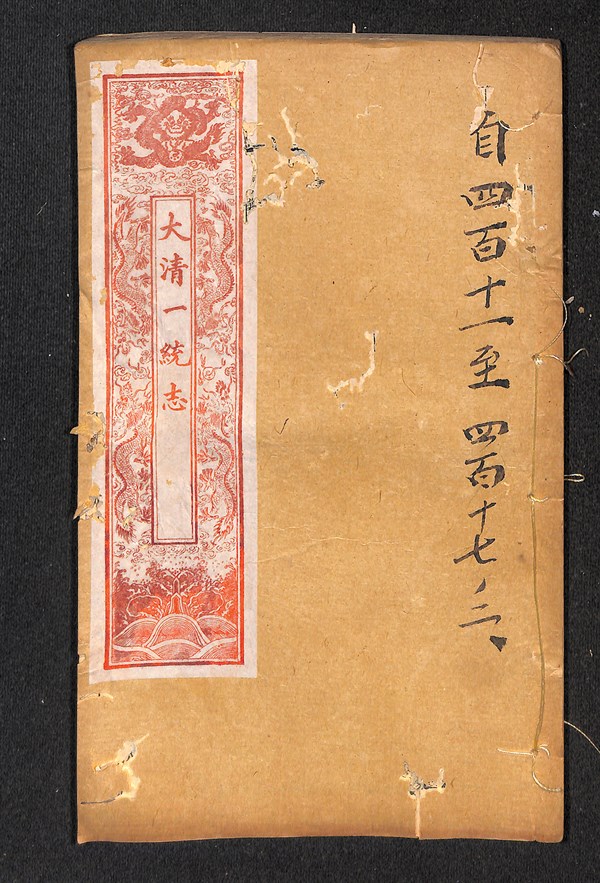 自四百十一至四百十七ノ二
大清一統志